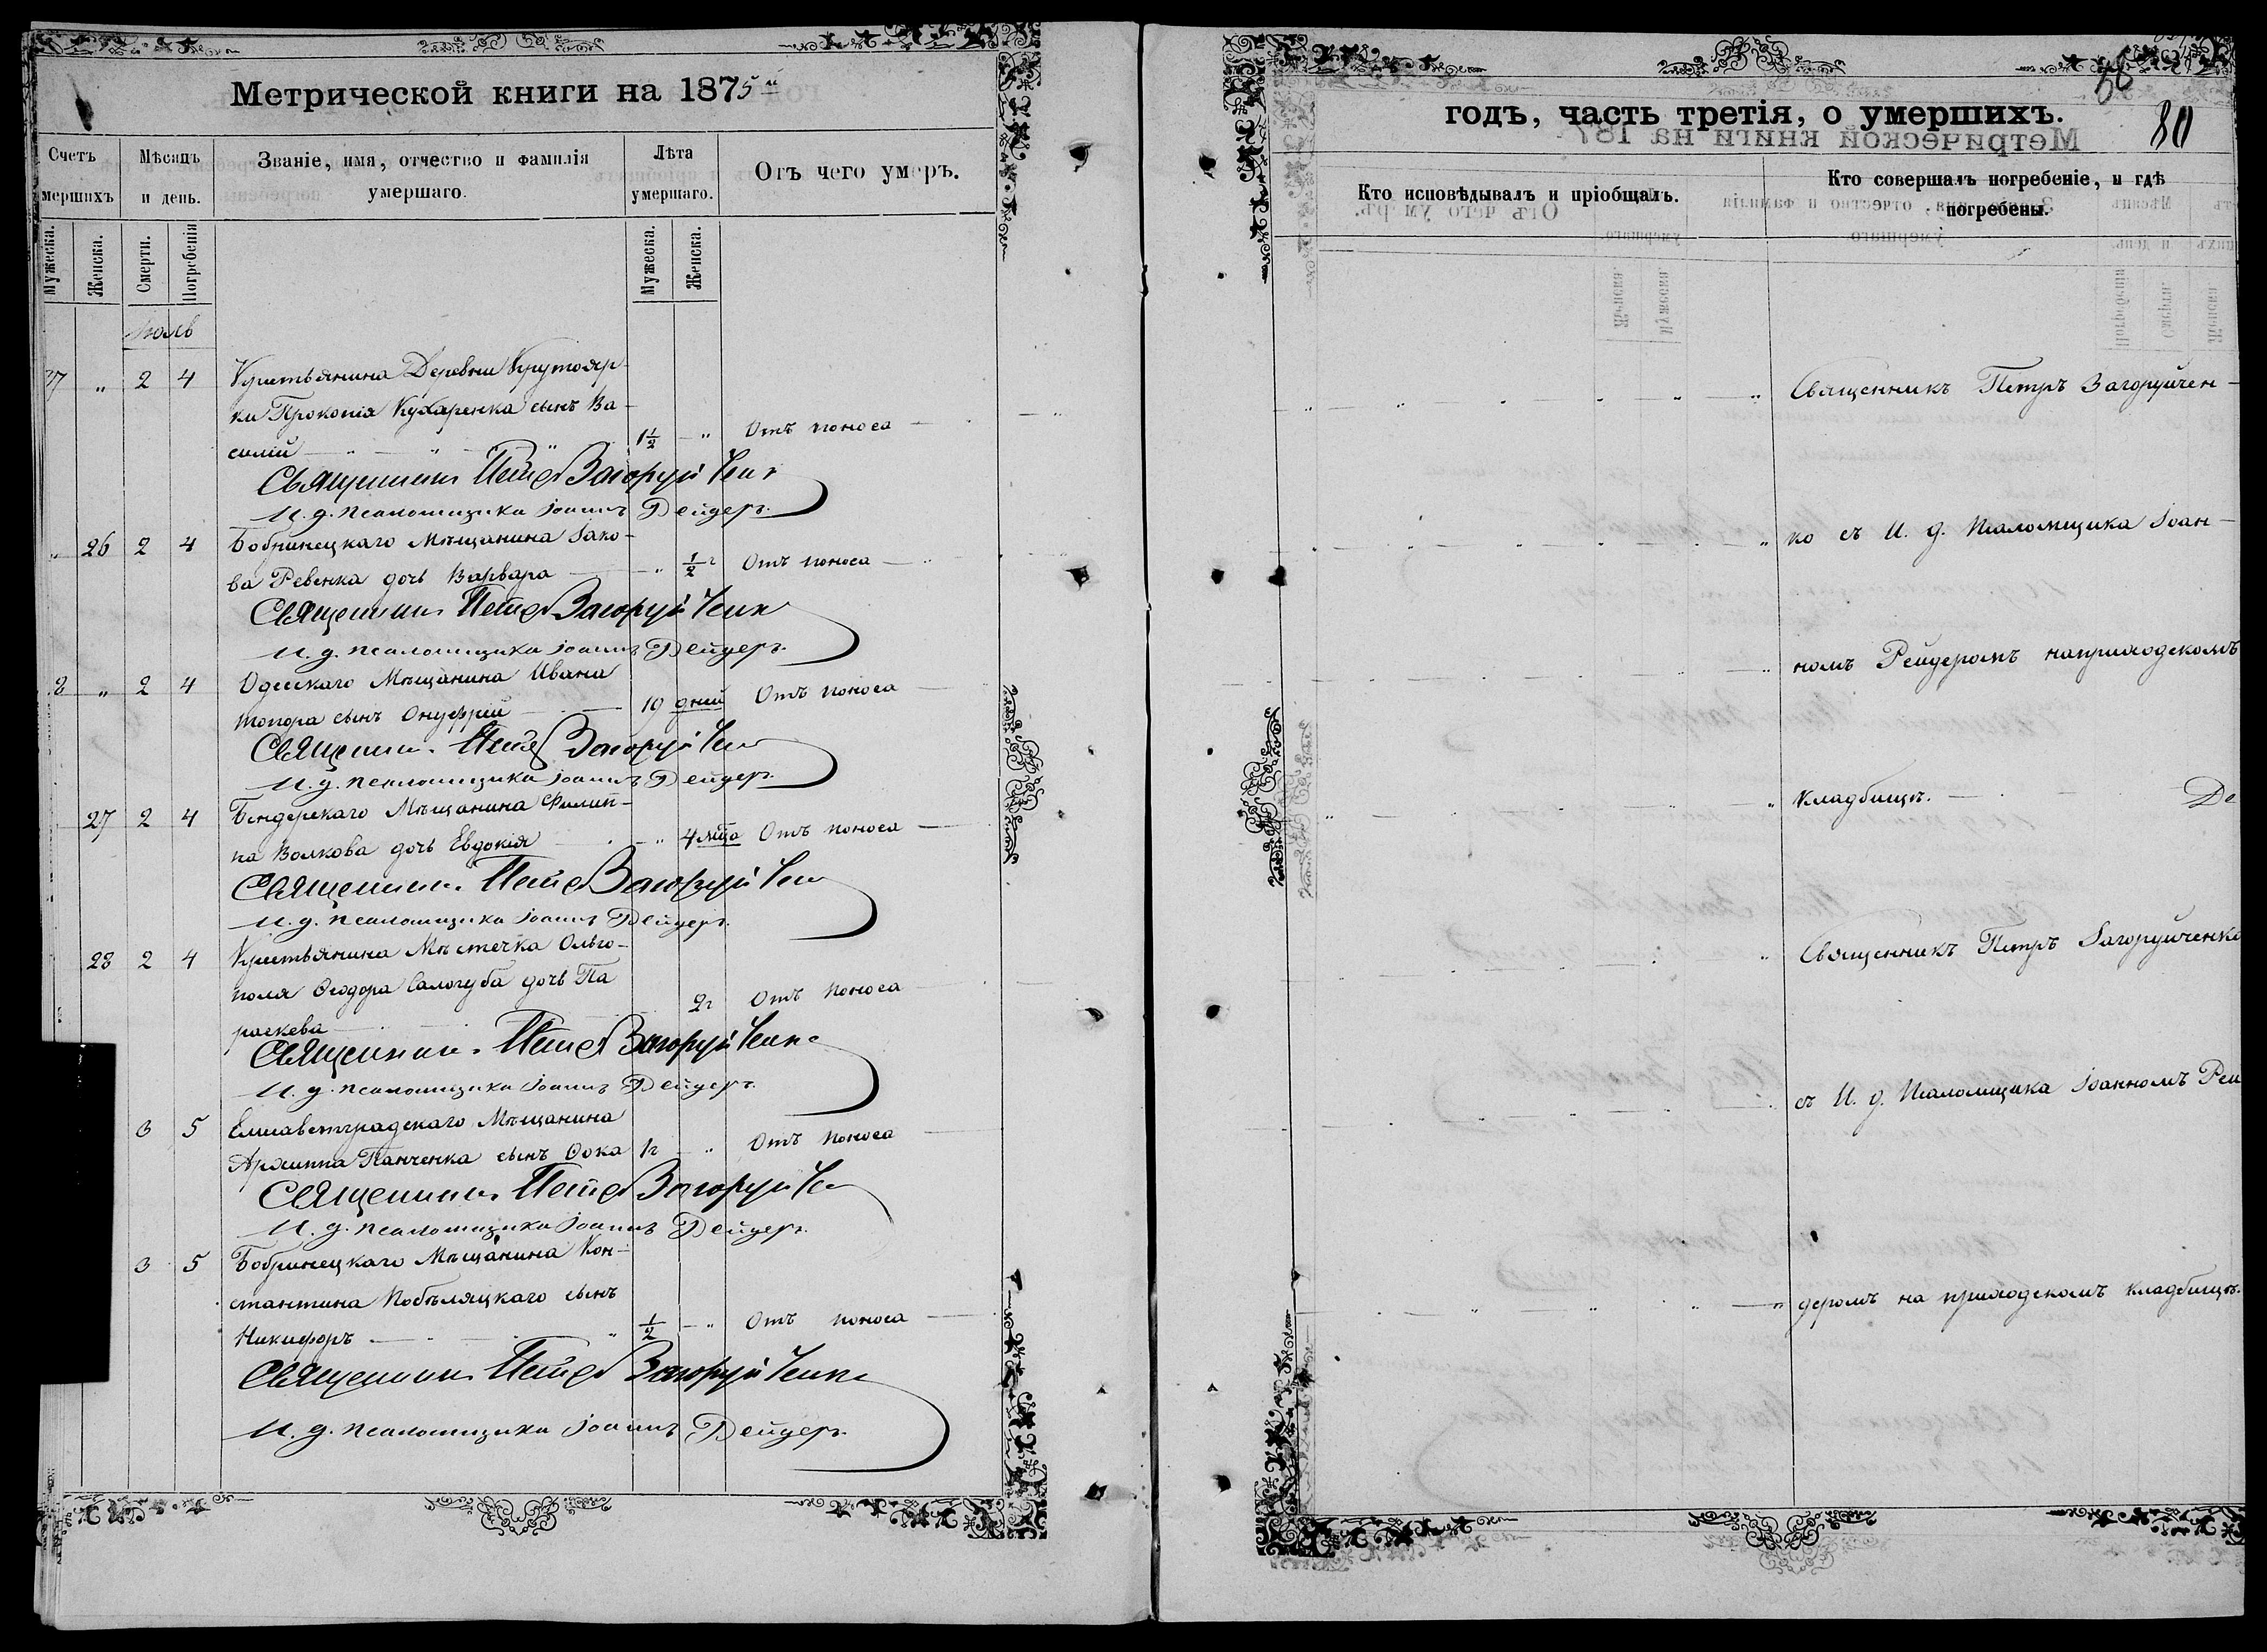 Метрической книги на 1875 й
Счетъ мершихъ
Мѣсяцъ и день.
Званіе, имя, отчество и фамилія умершаго.
Лѣта умершаго.
Отъ чего умеръ.
Мужеска. Женска. Смерти. Погребенія Мужеска. Женска.
Іюль
37 „ 2 4 Крестьянина Деревни Крутояр-
ки Прокопія Кухаренка сынъ Ва-
силій 1½ „ Отъ поноса
Священникъ Петръ Загоруйченко
И. д. псаломщика Іоаннъ Рейдеръ.
„ 26 2 4 Бобринецкаго Мѣщанина Іако-
ва Ревенка дочь Варвара „ ½ г Отъ поноса
Священникъ Петръ Загоруйченко
И. д. псаломщика Іоаннъ Рейдеръ.
8 „ 2 4 Одесскаго Мѣщанина Ивана
Топора сынъ Онуфрій 19 дней Отъ поноса
Священникъ Петръ Загоруйченко
И. д. псаломщика Іоаннъ Рейдеръ.
27 2 4 Бендерскаго Мѣщанина Филип-
па Волкова дочь Евдокія „ 4 мца Отъ поноса
Священникъ Петръ Загоруйченко
И. д. псаломщика Іоаннъ Рейдеръ.
28 2 4 Крестьянина Мѣстечка Ольго-
поля Ѳеодора Салогуба дочь Па
раскева 2 г Отъ поноса
Священникъ Петръ Загоруйченко
И. д. псаломщика Іоаннъ Рейдеръ.
3 5 Елисаветградскаго Мѣщанина
Архиппа Панченка сынъ Ѳока 1 г „ Отъ поноса
Священникъ Петръ Загоруйченко
И. д. псаломщика Іоаннъ Рейдеръ.
3 5 Бобринецкаго Мѣщанина Кон-
стантина Побѣляцкаго сынъ
Никифоръ „ ½ „ Отъ поноса
Священникъ Петръ Загоруйченко
И. д. псаломщика Іоаннъ Рейдеръ.
годъ, часть третія, о умершихъ.
80
Кто исповѣдывалъ и пріобщалъ.
Кто совершалъ погребеніе, и гдѣ
погребены.
Священникъ Петръ Загоруйчен-
ко съ И. д. Псаломщика Іоан-
номъ Рейдеромъ на приходскомъ
кладбищѣ.
Священникъ Петръ Загоруйченко
съ И. д. Псаломщика Іоанномъ Рей
деромъ на приходскомъ кладбищѣ.